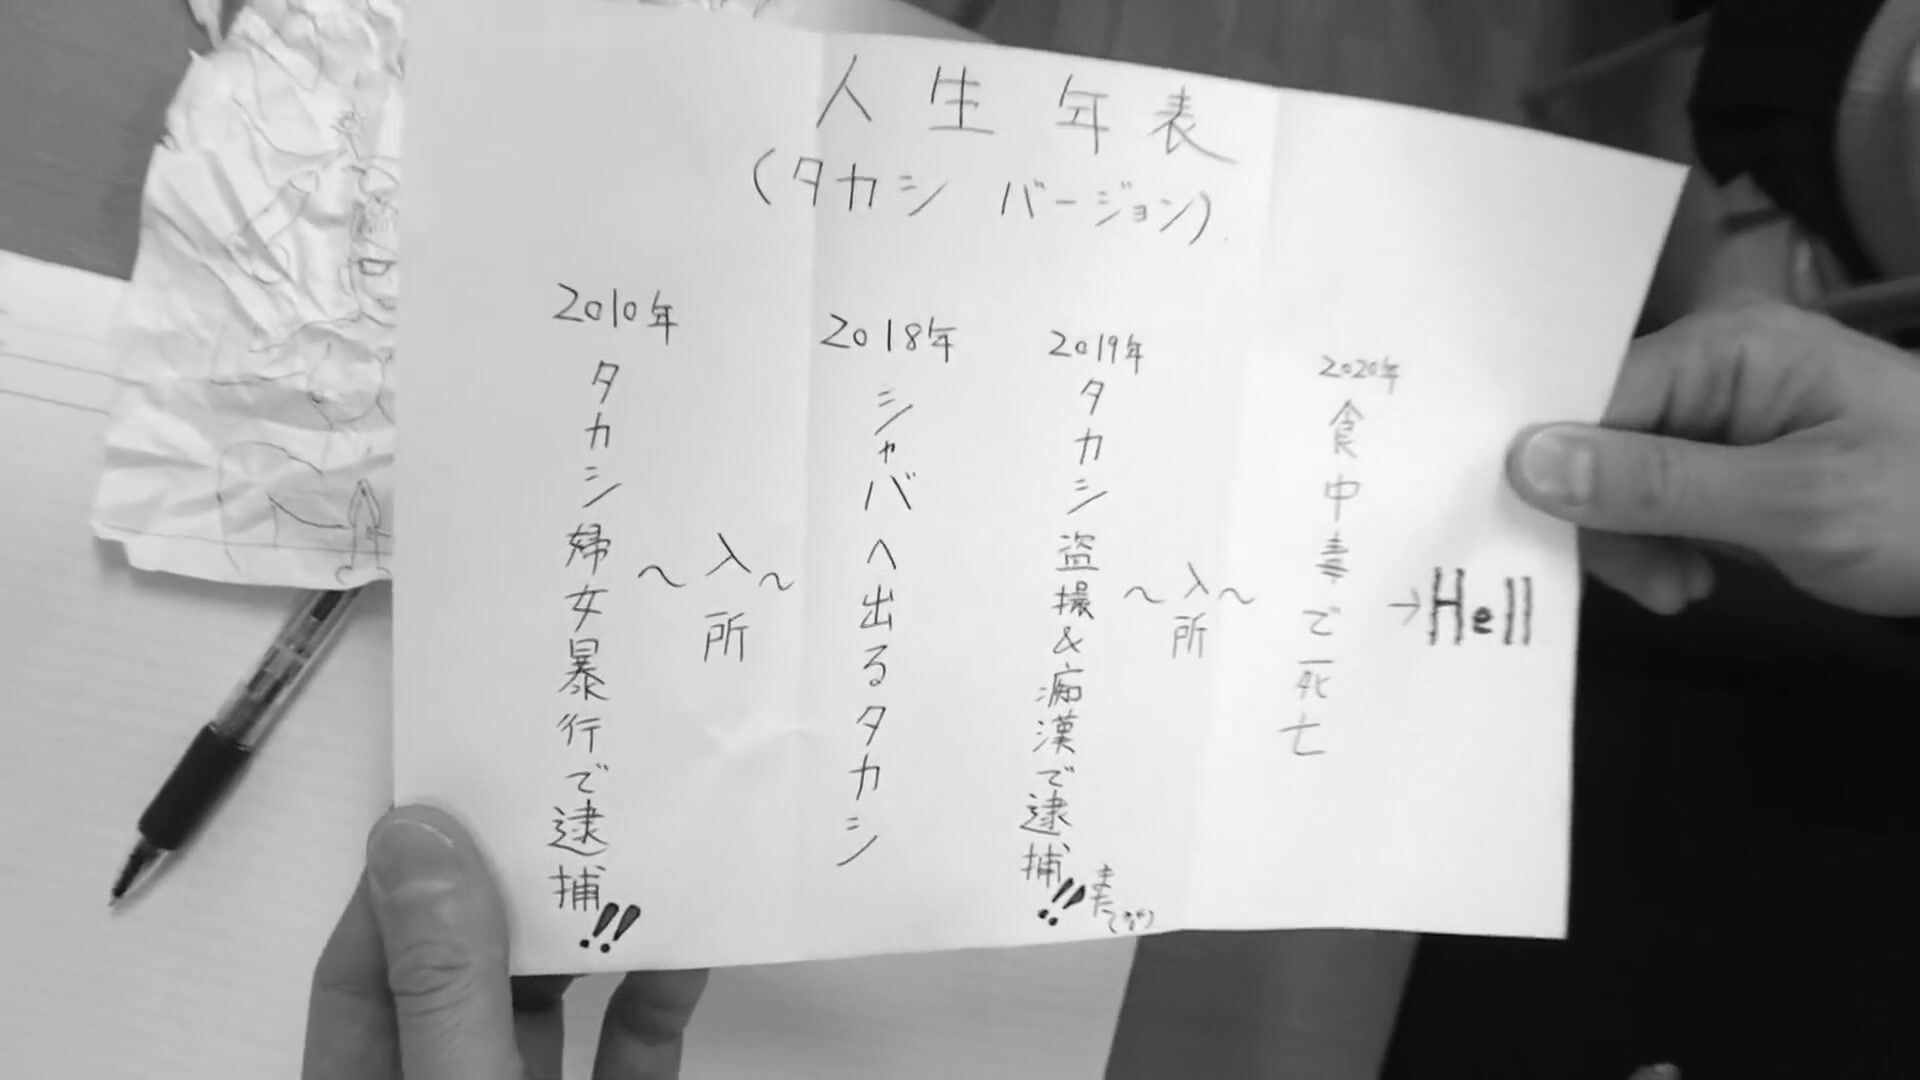 人生年表
(タカシ バージョン)
2010年
タカシ婦女暴行で逮捕!!
～入所～
2018年
シャバへ出るタカシ
2019年
タカシ盗撮&痴漢で逮捕!!
また
～入所～
2020年
食中毒で死亡
→Hell